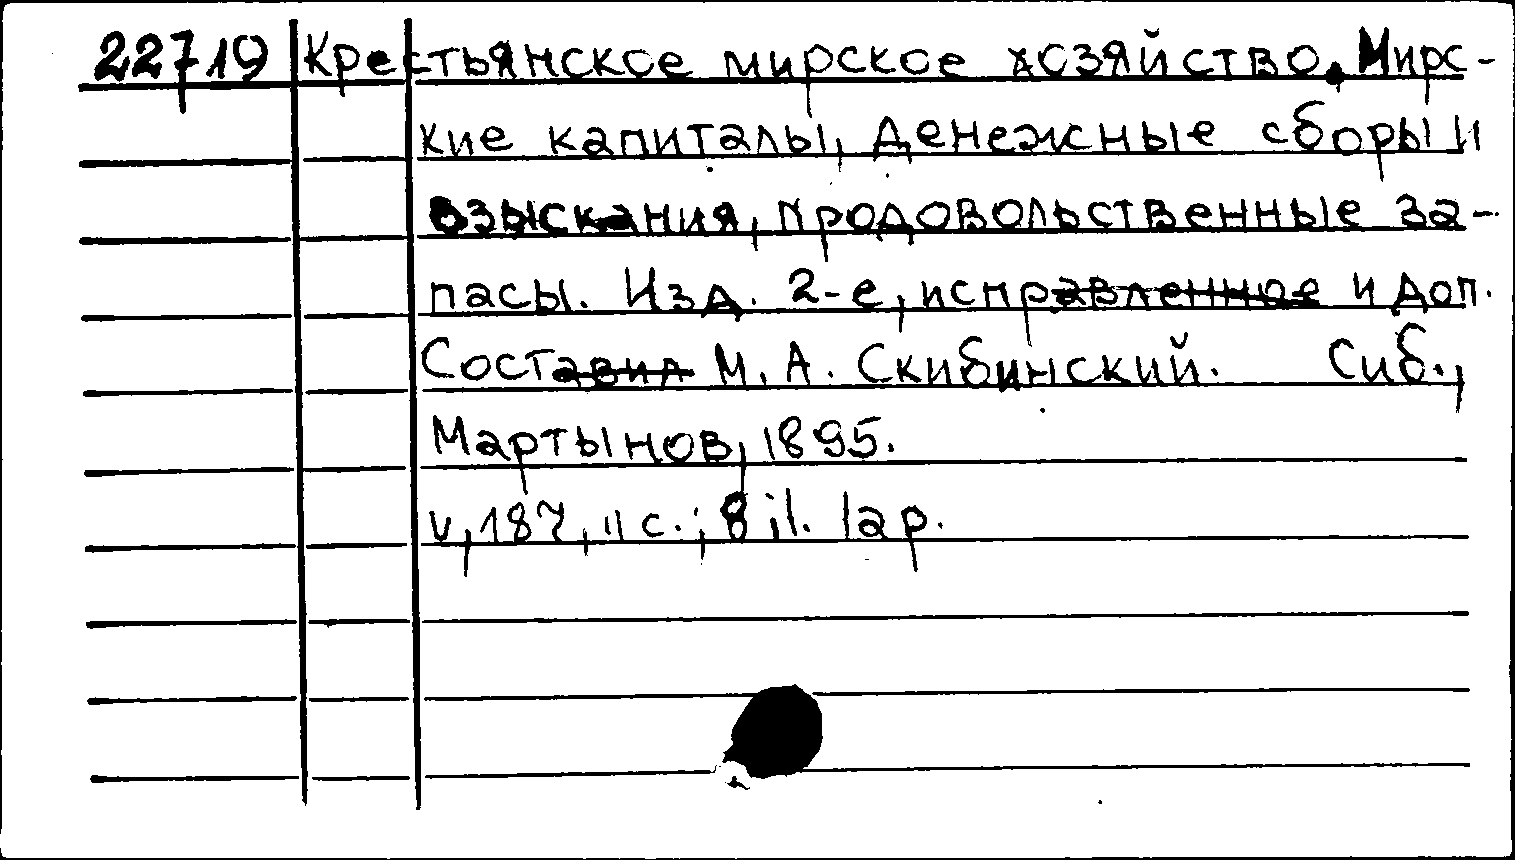 22719 Крестьянское мирское хозяйство. Мирс-
кие капиталы, денежные сборы и
взыскания, продовольственные за-
пасы. Изд. 2-е, исправленное и доп.
Составил М. А. Скибинский. Спб.,
Мартынов, 1895.
v, 187, II с.; 8 il. lap.